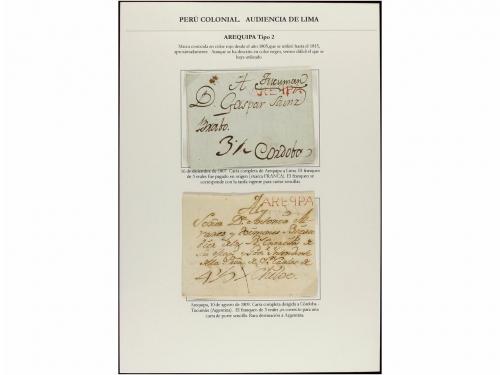 PERÚ COLONIAL. AUDIENCIA DE LIMA
AREQUIPA Tipo 2
Marca conocida en color rojo desde el año 1805, que se utilizó hasta el 1815,
aproximadamente. Aunque se ha descrito en color negro, vemos difícil el que se
haya utilizado.
A Tucuman
AREqPA
D. Gaspar Sainz
Bravo.
3½ Cordoba
16 de diciembre de 1807. Carta completa de Arequipa a Lima. El franqueo
de 3 reales fue pagado en origen (marca FRANCA). El franqueo se
corresponde con la tarifa vigente para cartas sencillas.
AREqPA
Señor D. Antonio
y
de
su
4½ Chiloe.
Arequipa, 10 de agosto de 1809. Carta completa dirigida a Córdoba -
Tucumán (Argentina). El franqueo de 3 reales ½ es correcto para una
carta de porte sencillo. Rara destinación a Argentina.